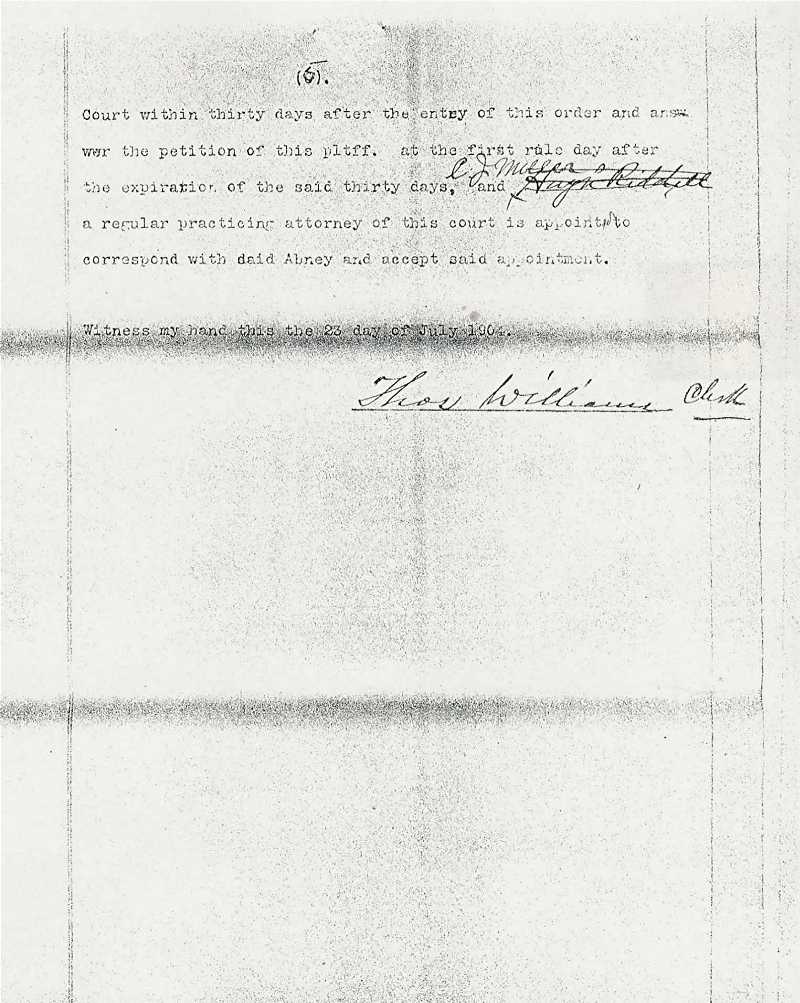 (5).
Court within thirty days after the entry of this order and answ
wer the petition of this pltff. at the first rule day after
C. J. Miller
the expiration of the said thirty days, and Hugh Riddell
a regular practicing attorney of this court is appointed to
correspond with daid Abney and accept said appointment.
Witness my hand this the 23 day of July 1904.
Thos Williams Clerk